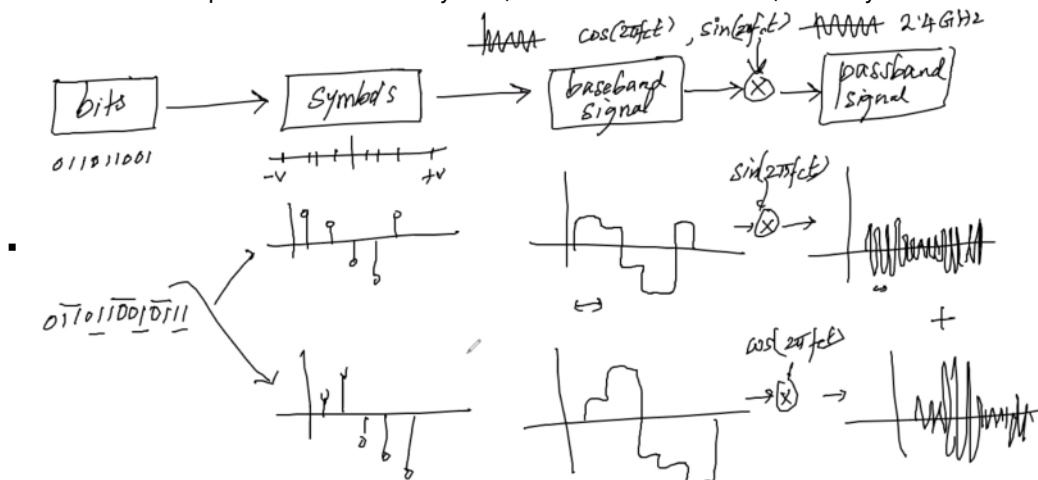 cos(2πfct) , sin(2πfct) 2.4 GHz
bits symbols baseband signal X passband signal
011011001
-V +V
sin(2πfct)
X
011011001011
+
cos(2πfct)
X